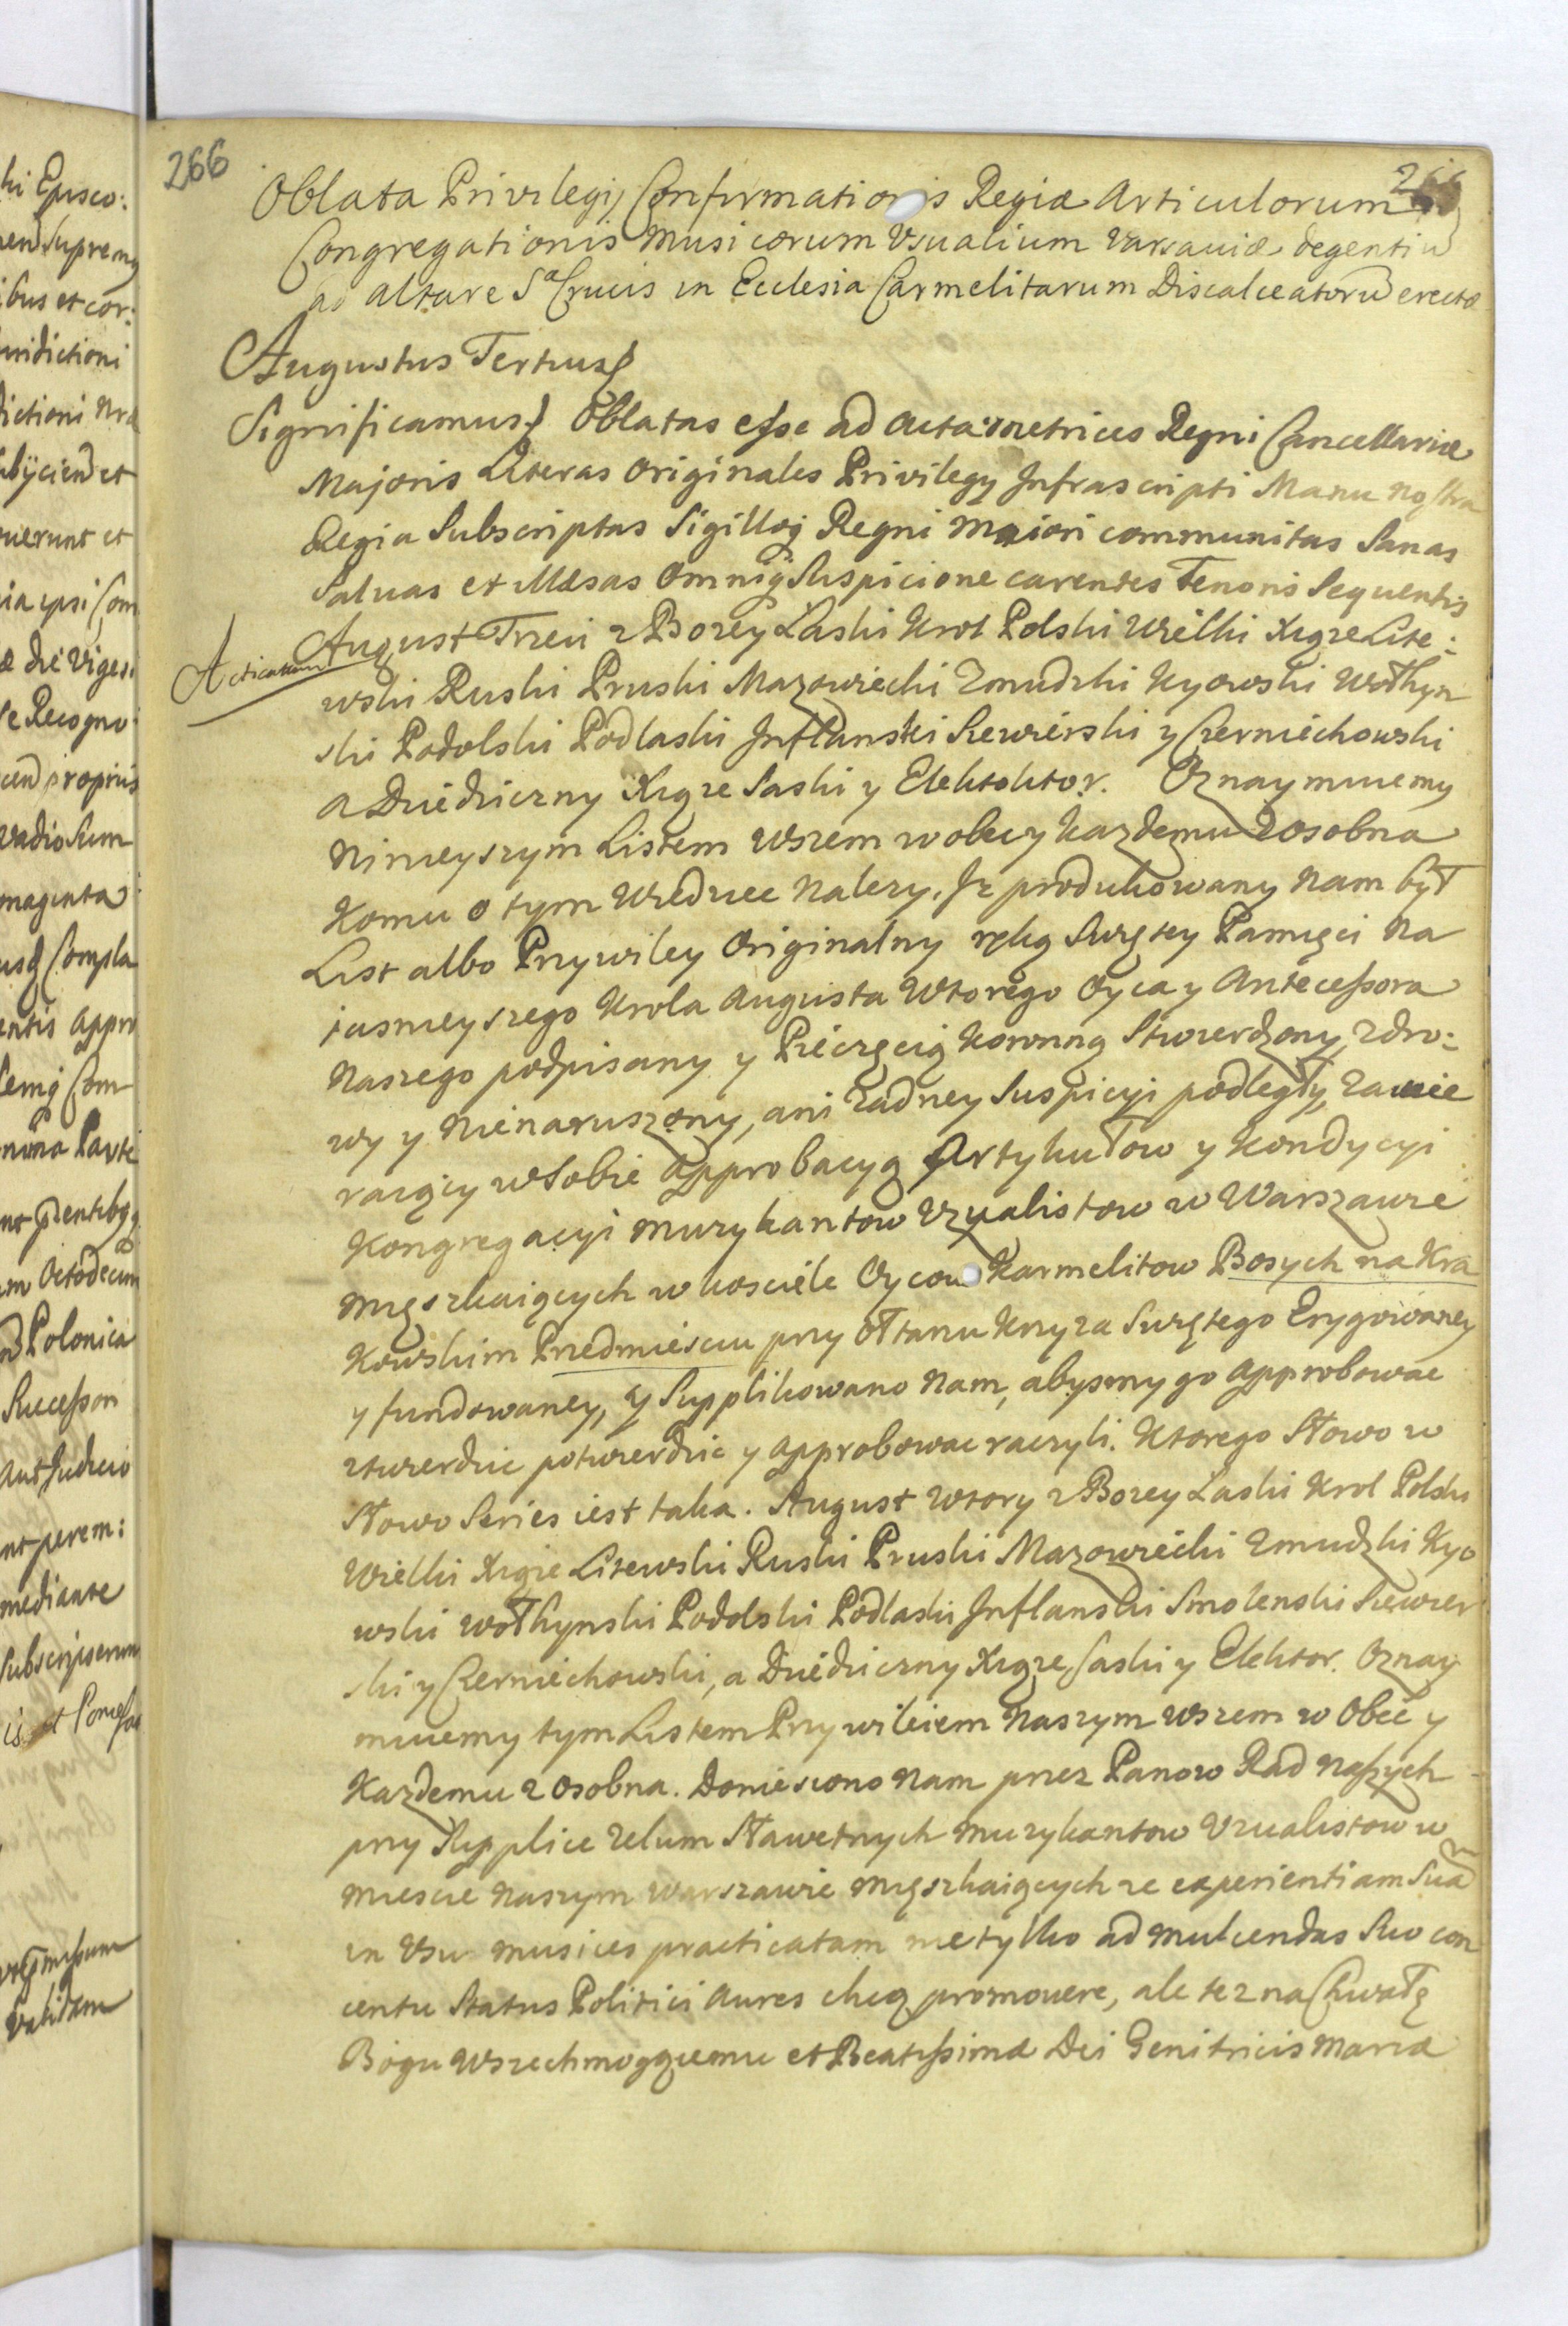 266
Oblata Privilegij Confirmationis Regiæ Articulorum
Congregationis Musicorum Usualium Varsaviæ degentiũ
ad altare S Crucis in Ecclesia Carmelitarum Discalceatorũ erectæ
Augustus Tertius
Significamus Oblatas esse ad Acta Metrices Regni Cancellariæ
Majoris Literas Originales Privilegÿ Infrascripti Manu nostra
Regia Subscriptas Sigilloq Regni Maiori communitas Sanas
Salvas et Illæsas Omniq Suspicione carentes Tenoris Sequentis
Acticatum
August Trzeci z Bozey Łaski Krol Polski Wielki Xigze Lite:
wski Ruski Pruski Mazowiecki Zmudzki Kyowski Wołhyn
ski Podolski Podlaski Inflanski Siewierski y Czerniechowski
a Dziedziczny Xiąze Saski y Elektoktor. Oznaymuiemy
Ninieyszym Listem wszem wobec y kazdemu zosobna
Komu o tym wiedziec nalezy. Iz produkowany nam był
List albo Przywiley Originalny ręką Swiętey Pamięci Na
iasnieyszego Krola Augusta Wtorego Oyca y Antecessora
Naszego podpisany y Pieczęcią Koronną Stwierdzony, zdro:
wy y Nienaruszony, ani zadney Suspicyi podległy, zawie
raiący wsobie approbacyą Artykułow y Kondycyi
Kongregacyi muzykantow Vzualistow w Warszawie
mięszkaiących w kosciele Oycow Karmelitow Bosych na Kra
Kowskim Przedmiesciu przy Ołtarzu Krzyza Swiętego Erygowaney
y fundowaney, y Supplikowano Nam, abysmy go approbowac
stwierdzic potwierdzic y approbowac raczyli. Ktorego Słowo w
Słowo Series iest taka. August Wtory z Bozey Łaski Krol Polski
Wielki Xiąze Litewski Ruski Pruski Mazowiecki Zmudzki Kyo
wski Wołhynski Podolski Podlaski Inflanski Smolenski Siewier
ski y Czerniechowski, a Dziedziczny Xiąze Saski y Elektor. Oznay
muiemy tym Listem Przywileiem Naszym wszem w Obec y
Kazdemu z osobna. Doniesiono Nam przez Panow Rad Naszych
przy Supplice Zelum Sławetnych muzykantow Vzualistow w
miescie Naszym Warszawie mięszkaiących ze experientiam Suã
in Vsu musices practicatam nietylko ad mulcendas Suo con
centu Status Politici Aures chcą promovere, ale tez na Chwałę
Bogu Wszechmogącemu et Beatissimæ Dei Genitricis Mariæ